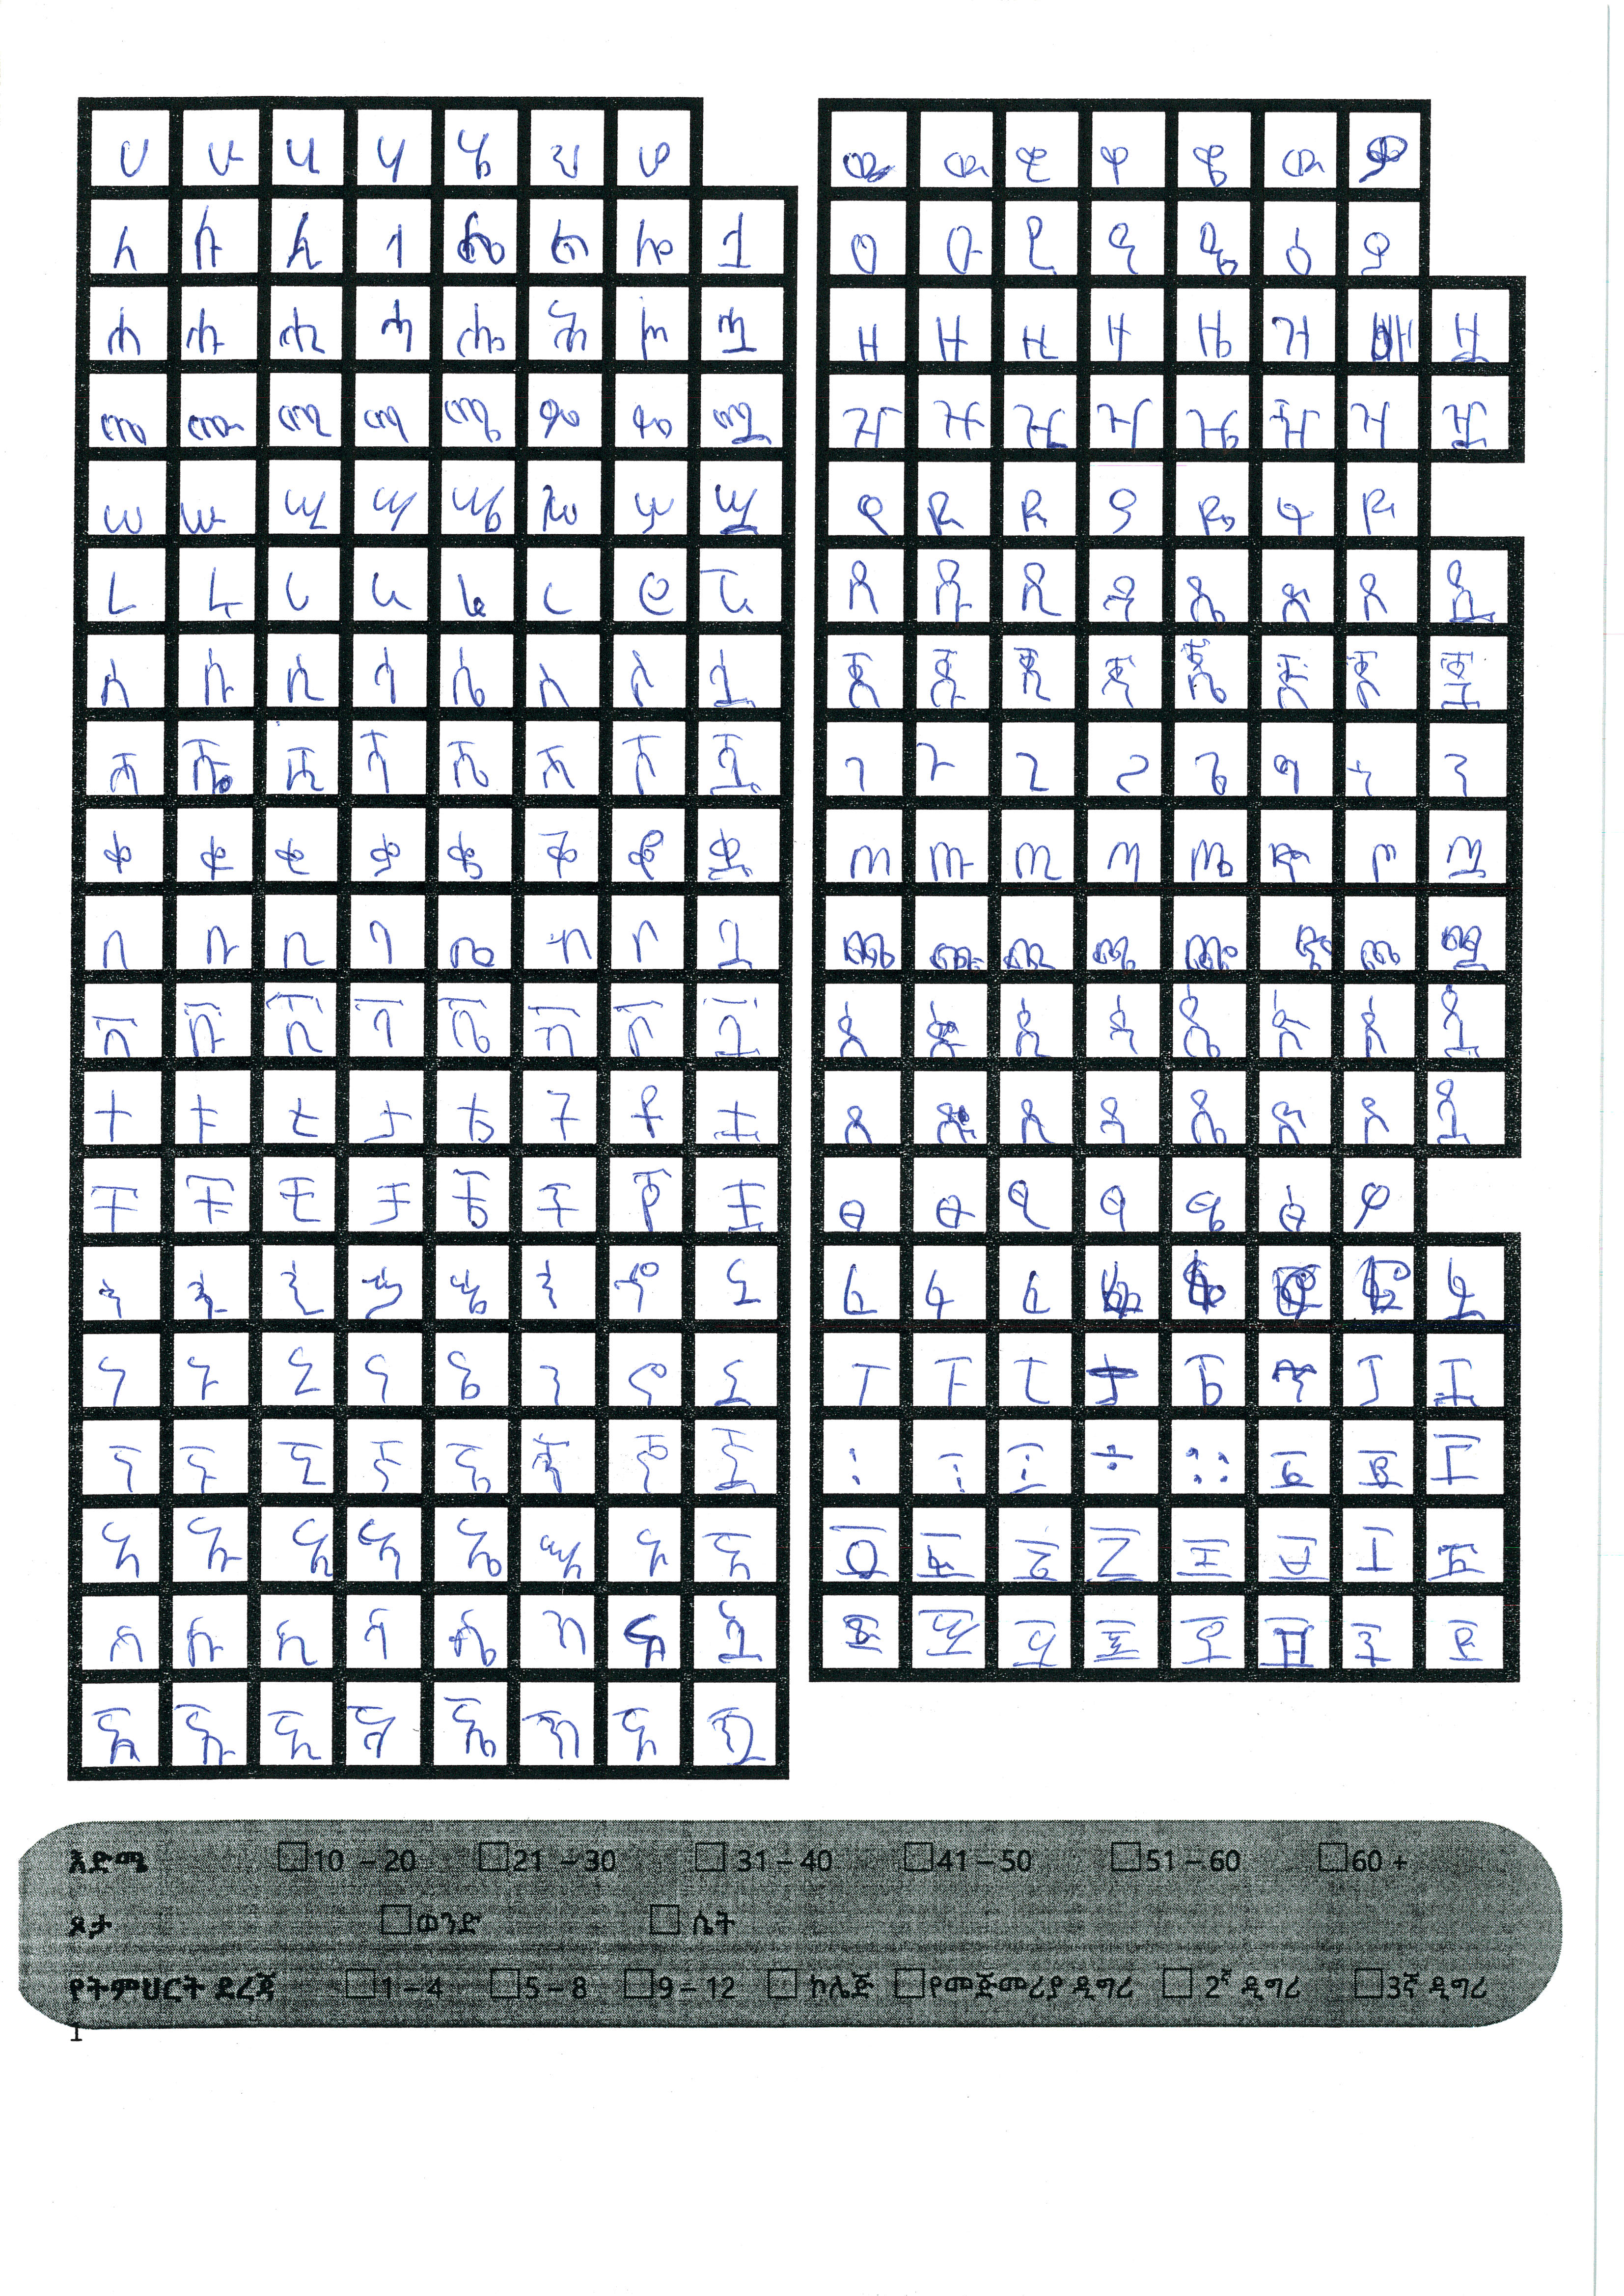 ሀ ሁ ሂ ሃ ሄ ህ ሆ
ለ ሉ ሊ ላ ሌ ል ሎ ሏ
ሐ ሑ ሒ ሓ ሔ ሕ ሖ ሗ
መ ሙ ሚ ማ ሜ ም ሞ ሟ
ሠ ሡ ሢ ሣ ሤ ሥ ሦ ሧ
ረ ሩ ሪ ራ ሬ ር ሮ ሯ
ሰ ሱ ሲ ሳ ሴ ስ ሶ ሷ
ሸ ሹ ሺ ሻ ሼ ሽ ሾ ሿ
ቀ ቁ ቂ ቃ ቄ ቅ ቆ ቋ
በ ቡ ቢ ባ ቤ ብ ቦ ቧ
ቨ ቩ ቪ ቫ ቬ ቭ ቮ ቯ
ተ ቱ ቲ ታ ቴ ት ቶ ቷ
ቸ ቹ ቺ ቻ ቼ ች ቾ ቿ
ኀ ኁ ኂ ኃ ኄ ኅ ኆ ኋ
ነ ኑ ኒ ና ኔ ን ኖ ኗ
ኘ ኙ ኚ ኛ ኜ ኝ ኞ ኟ
አ ኡ ኢ ኣ ኤ እ ኦ ኧ
ከ ኩ ኪ ካ ኬ ክ ኮ ኳ
ኸ ኹ ኺ ኻ ኼ ኽ ኾ ዃ
ወ ዉ ዊ ዋ ዌ ው ዎ
ዐ ዑ ዒ ዓ ዔ ዕ ዖ
ዘ ዙ ዚ ዛ ዜ ዝ ዟ
ዠ ዡ ዢ ዣ ዤ ዥ ዦ ዧ
የ ዩ ዪ ያ ዬ ይ ዮ
ደ ዱ ዲ ዳ ዴ ድ ዶ ዷ
ጀ ጁ ጂ ጃ ጄ ጅ ጆ ጇ
ገ ጉ ጊ ጋ ጌ ግ ጎ
ጠ ጡ ጢ ጣ ጤ ጥ ጦ ጧ
ጨ ጩ ጪ ጫ ጬ ጭ ጮ ጯ
ጰ ጱ ጲ ጳ ጴ ጵ ጶ ጷ
ጸ ጹ ጺ ጻ ጼ ጽ ጾ ጿ
ፀ ፁ ፂ ፃ ፄ ፅ ፆ
ፈ ፉ ፊ ፏ
ፐ ፑ ፒ ፓ ፔ ፕ ፖ ፗ
፡ ፣ ፤ ÷ ። ፩ ፪ ፫
፬ ፭ ፮ ፯ ፰ ፱ ፲ ፳
፴ ፵ ፶ ፷ ፸ ፹ ፺ ፻
እድሜ 10 – 20 21 – 30 31 – 40 41 – 50 51 – 60 60 +
ጾታ ወንድ ሴት
የትምህርት ደረጃ 1 – 4 5 – 8 9 – 12 ኮሌጅ የመጀመሪያ ዲግሪ 2ኛ ዲግሪ 3ኛ ዲግሪ
1